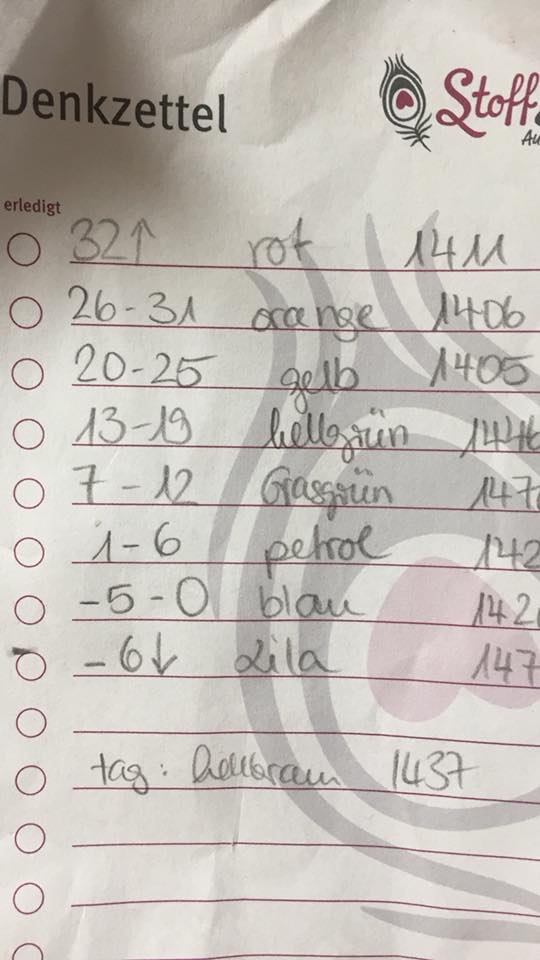 Denkzettel
Stoff
Au
erledigt
32↑ rot 1411
26-31 orange 1406
20-25 gelb 1405
13-19 hellgrün 1446
7-12 Grasgrün 147
1-6 petrol 142
-5-0 blau 142
-6↓ Lila 147
tag: hellbraun 1437